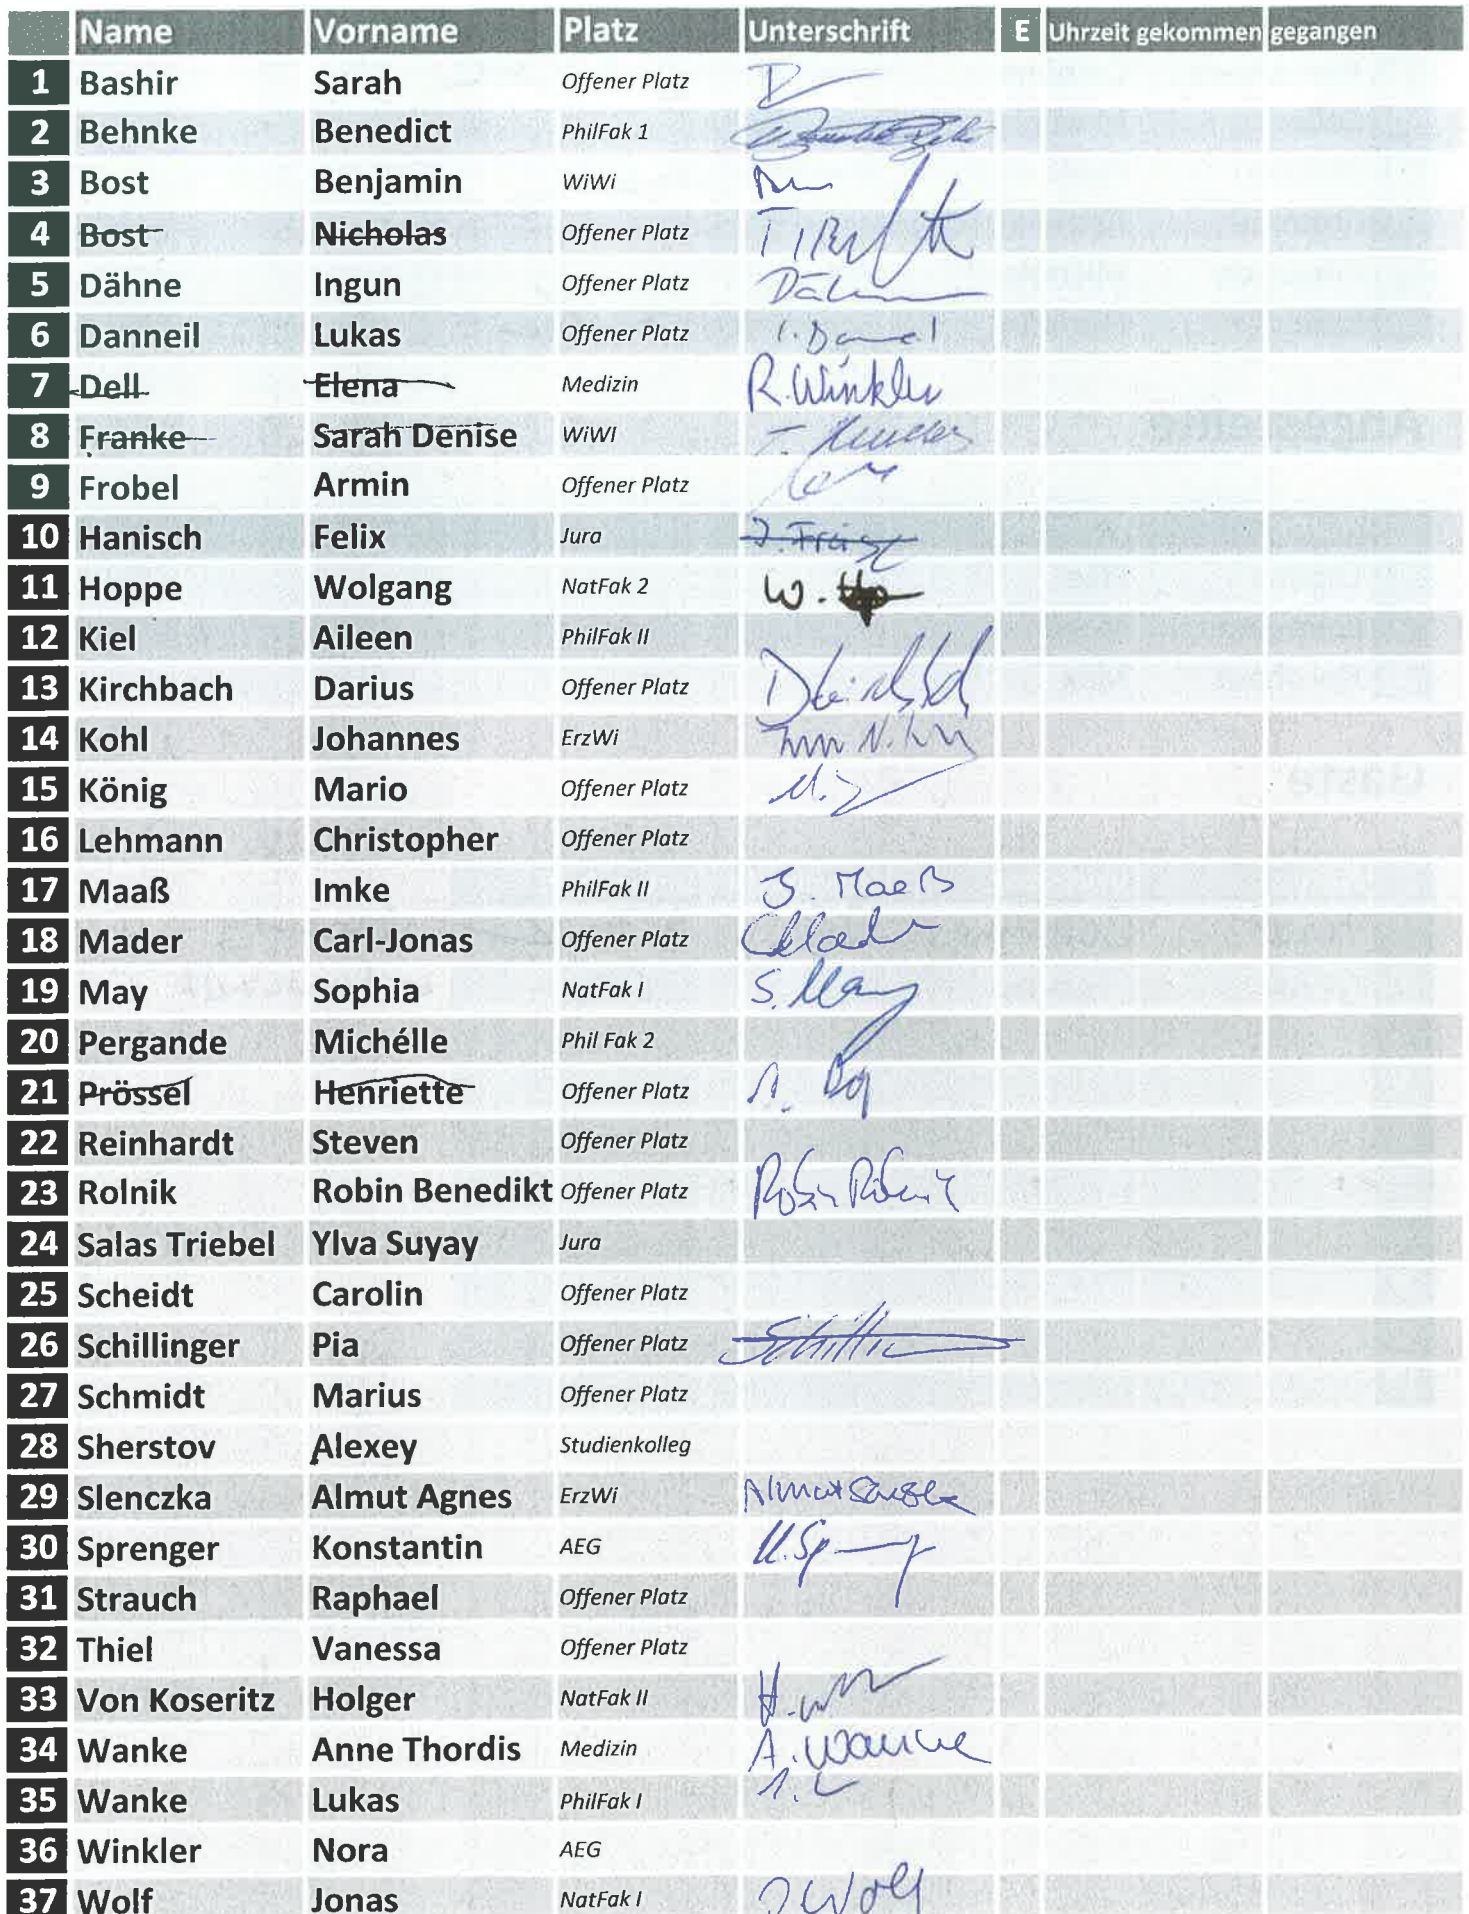 Name Vorname Platz Unterschrift E Uhrzeit gekommen gegangen
1 Bashir Sarah Offener Platz
2 Behnke Benedict PhilFak 1
3 Bost Benjamin WiWi
4 Bost Nicholas Offener Platz
5 Dähne Ingun Offener Platz
6 Danneil Lukas Offener Platz
7 Dell Elena Medizin R. Winkler
8 Franke Sarah Denise WiWI
9 Frobel Armin Offener Platz
10 Hanisch Felix Jura
11 Hoppe Wolgang NatFak 2 W.
12 Kiel Aileen PhilFak II
13 Kirchbach Darius Offener Platz
14 Kohl Johannes ErzWi
15 König Mario Offener Platz
16 Lehmann Christopher Offener Platz
17 Maaß Imke PhilFak II J. Maaß
18 Mader Carl-Jonas Offener Platz
19 May Sophia NatFak I S. May
20 Pergande Michélle Phil Fak 2
21 Prössel Henriette Offener Platz
22 Reinhardt Steven Offener Platz
23 Rolnik Robin Benedikt Offener Platz Robin Rolnik
24 Salas Triebel Ylva Suyay Jura
25 Scheidt Carolin Offener Platz
26 Schillinger Pia Offener Platz
27 Schmidt Marius Offener Platz
28 Sherstov Alexey Studienkolleg
29 Slenczka Almut Agnes ErzWi Almut Slenczka
30 Sprenger Konstantin AEG
31 Strauch Raphael Offener Platz
32 Thiel Vanessa Offener Platz
33 Von Koseritz Holger NatFak II
34 Wanke Anne Thordis Medizin A. Wanke
35 Wanke Lukas PhilFak I
36 Winkler Nora AEG
37 Wolf Jonas NatFak I J Wolf